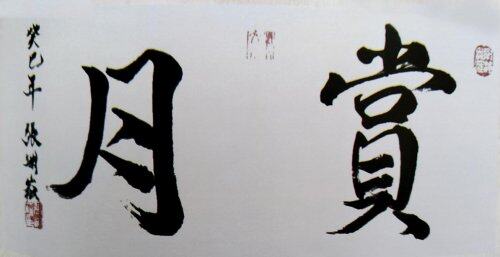 賞月
癸巳年 張